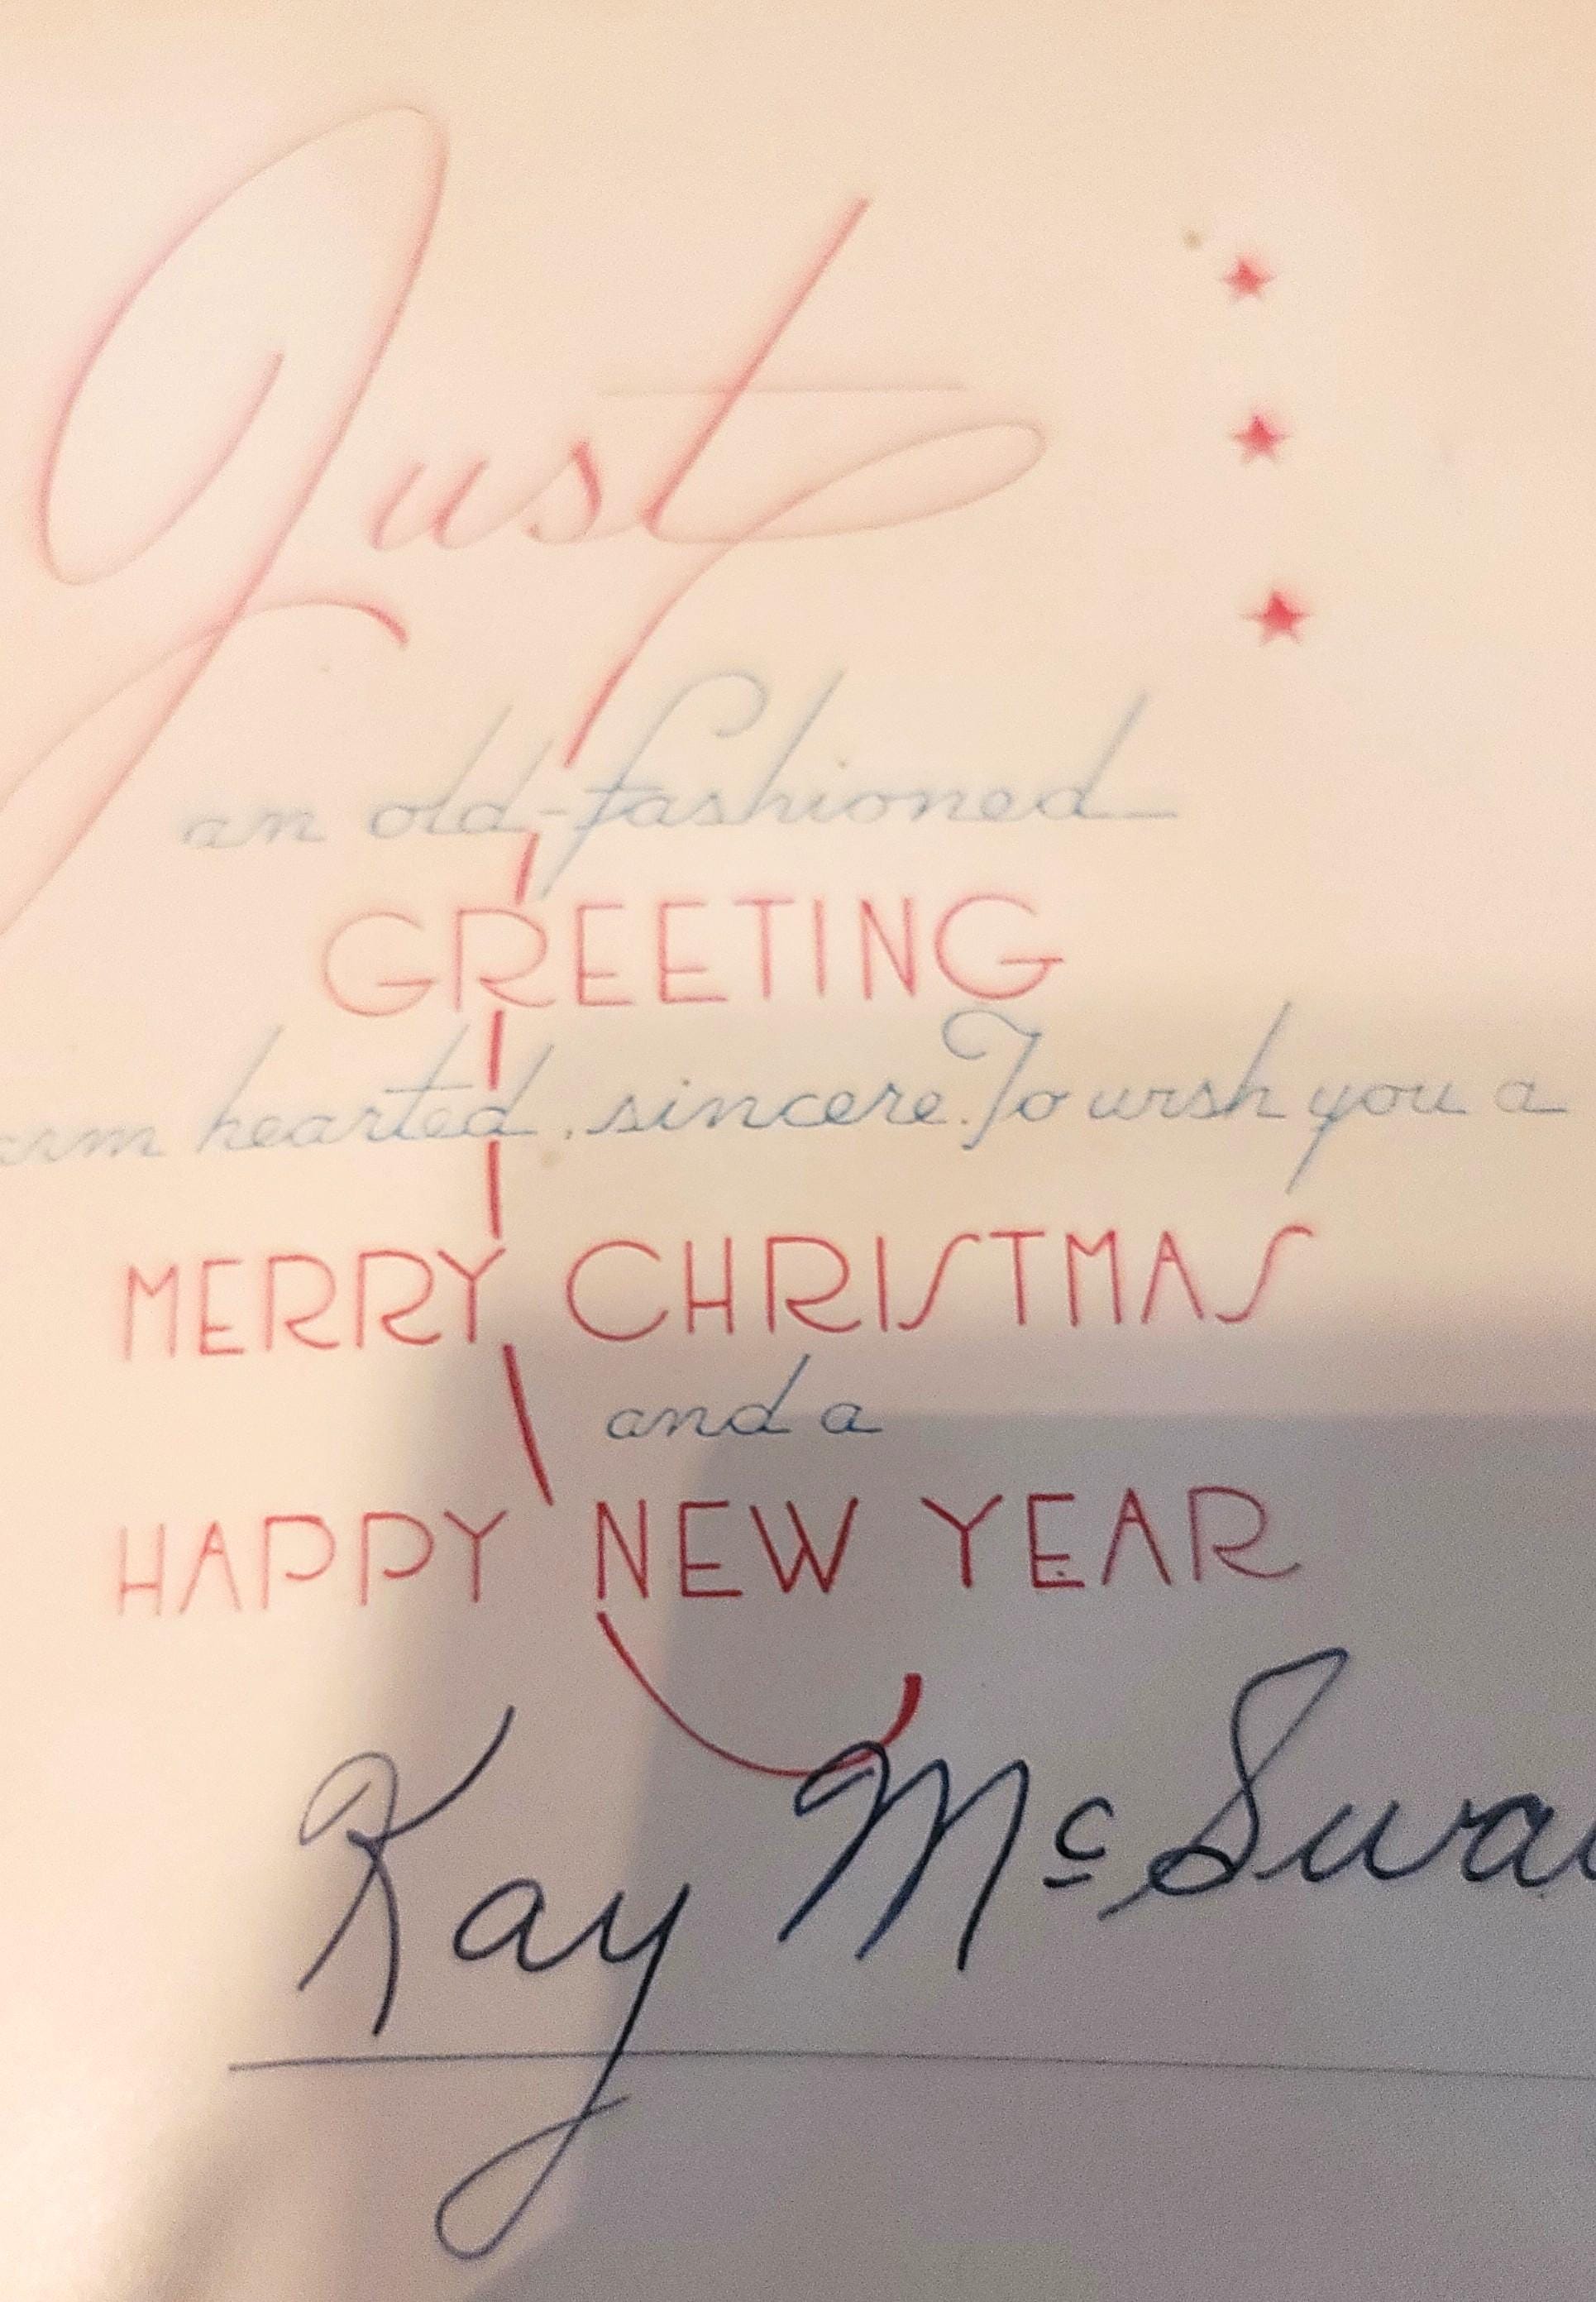 Just
an old-fashioned
GREETING
hearted, sincere. To wish you a
MERRY CHRISTMAS
and a
HAPPY NEW YEAR
Kay Mc